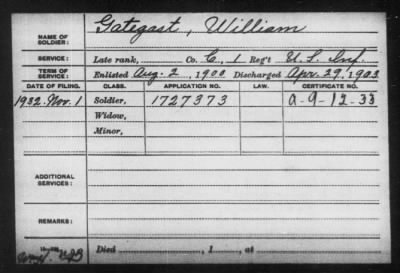 NAME OF SOLDIER: Gategast, William
SERVICE: Late rank, Co. C, 1 Reg't U.S. Inf.
TERM OF SERVICE: Enlisted Aug. 2, 1900 Discharged Apr. 29, 1903
DATE OF FILING. CLASS. APPLICATION NO. LAW. CERTIFICATE NO.
1932. Nov. 1 Soldier, 1727373 A-9-12-33
Widow,
Minor,
ADDITIONAL SERVICES:
REMARKS:
Died , 1 , at